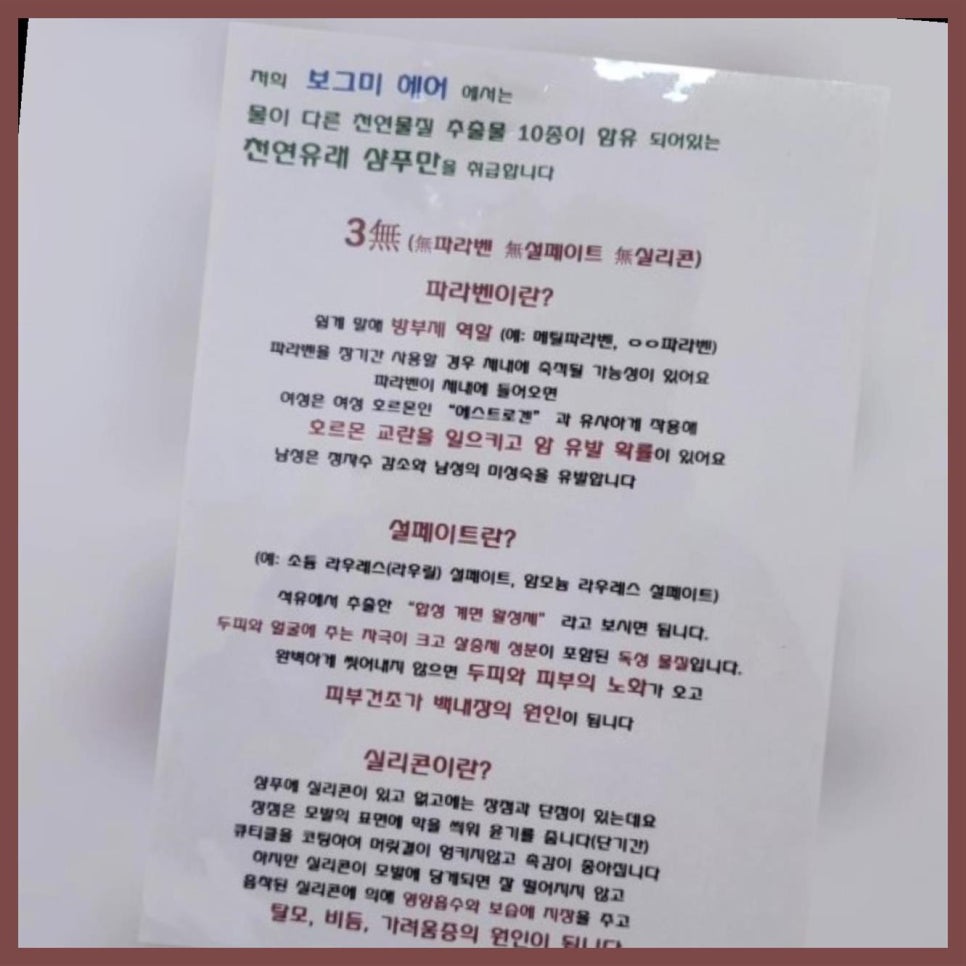 저희 보그미 헤어 에서는
물이 다른 천연물질 추출물 10종이 함유 되어있는
천연유래 샴푸만을 취급합니다
3無 (無파라벤 無설페이트 無실리콘)
파라벤이란?
쉽게 말해 방부제 역할 (예: 메틸파라벤, ㅇㅇ파라벤)
파라벤을 장기간 사용할 경우 체내에 축적될 가능성이 있어요
파라벤이 체내에 들어오면
여성은 여성 호르몬인 “에스트로겐” 과 유사하게 작용해
호르몬 교란을 일으키고 암 유발 확률이 있어요
남성은 정자수 감소와 남성의 미성숙을 유발합니다
설페이트란?
(예: 소듐 라우레스(라우릴) 설페이트, 암모늄 라우레스 설페이트)
석유에서 추출한 “합성 계면 활성제” 라고 보시면 됩니다.
두피와 얼굴에 주는 자극이 크고 살충제 성분이 포함된 독성 물질입니다.
완벽하게 씻어내지 않으면 두피와 피부의 노화가 오고
피부건조가 백내장의 원인이 됩니다
실리콘이란?
샴푸에 실리콘이 있고 없고에는 장점과 단점이 있는데요
장점은 모발의 표면에 막을 씌워 윤기를 줍니다(단기간)
큐티클을 코팅하여 머릿결이 엉키지않고 촉감이 좋아집니다
하지만 실리콘이 모발에 닿게되면 잘 떨어지지 않고
흡착된 실리콘에 의해 영양흡수와 보습에 지장을 주고
탈모, 비듬, 가려움증의 원인이 됩니다